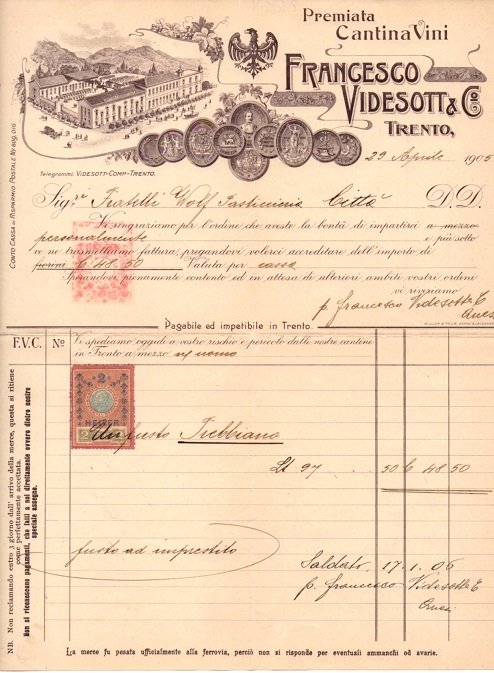 Premiata
Cantina Vini
FRANCESCO
VIDESOTT & C.
TRENTO,
Telegrammi: VIDESOTT-COMP-TRENTO.
CONTO CASSA DI RISPARMIO POSTALE Nº 809.016
29 Aprile 1905
Sigri Fratelli Wolf Pasticceria Città D. D.
Vi ringraziamo per l'ordine che aveste la bontà di impartirci a mezzo
personalmente e più sotto
ve ne trasmettiamo fattura, pregandovi volerci accreditare dell'importo di
fiorini C 48.50 Valuta per cassa
Sperandovi pienamente contento ed in attesa di ulteriori ambiti vostri ordini
vi riveriamo
p. Francesco Videsott & C
Pagabile ed impetibile in Trento.
F.V.C. Nº Vi spediamo oggedì a vostro rischio e pericolo dalle nostre cantine
in Trento a mezzo uomo
2
HELLER
Un fusto Trebbiano
Lt 97 50 C 48 50
fusto ad imprestito
Saldato, 17.1.06
p. Francesco Videsott & C
NB. Non reclamando entro 3 giorno dall' arrivo della merce, questa si ritiene
come perfettamente accettata.
Non si riconoscono pagamenti, che fatti a noi direttamente ovvero dietro nostro
speciale assegno.
La merce fu pesata ufficialmente alla ferrovia, perciò non si risponde per eventuali ammanchi od avarie.